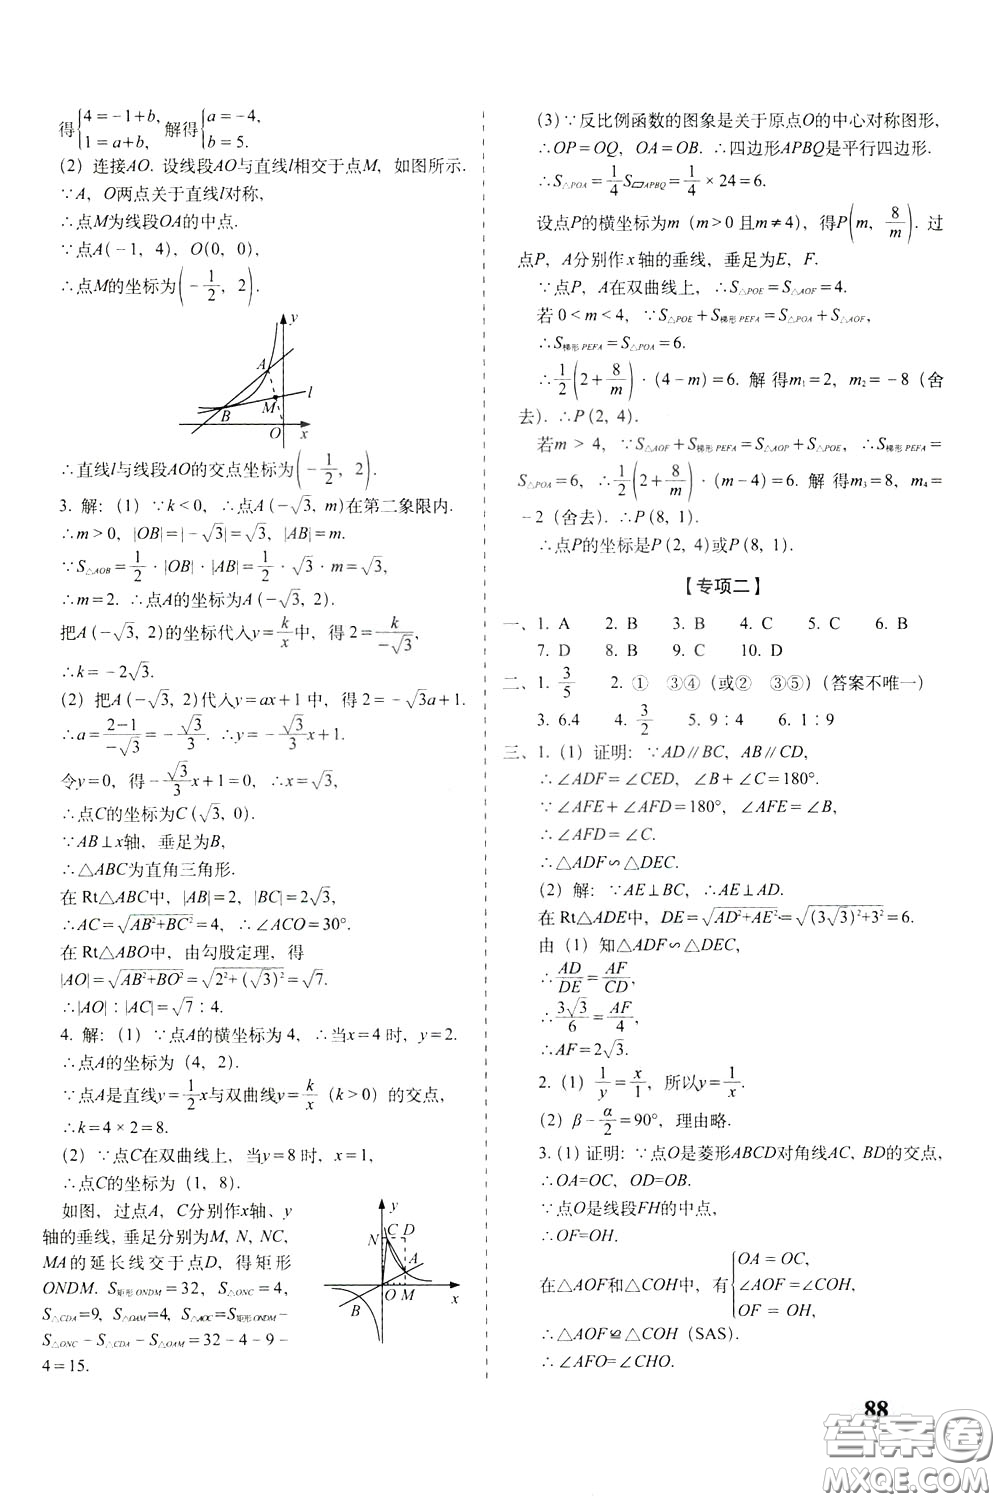 得{4=-1+b, 1=a+b, 解得{a=-4, b=5.
(2) 连接AO. 设线段AO与直线l相交于点M, 如图所示.
∵A, O两点关于直线l对称,
∴点M为线段OA的中点.
∵点A(-1, 4), O(0, 0),
∴点M的坐标为(-1/2, 2).
y
A
M
l
B
O
x
∴直线l与线段AO的交点坐标为(-1/2, 2).
3. 解: (1) ∵k<0, ∴点A(-√3, m)在第二象限内.
∴m>0, |OB|=|-√3|=√3, |AB|=m.
∵S△AOB=1/2·|OB|·|AB|=1/2·√3·m=√3,
∴m=2. ∴点A的坐标为A(-√3, 2).
把A(-√3, 2)的坐标代入y=k/x中, 得2=k/-√3,
∴k=-2√3.
(2) 把A(-√3, 2)代入y=ax+1中, 得2=-√3a+1.
∴a=2-1/-√3=-√3/3. ∴y=-√3/3x+1.
令y=0, 得-√3/3x+1=0, ∴x=√3.
∴点C的坐标为C(√3, 0).
∵AB⊥x轴, 垂足为B,
∴△ABC为直角三角形.
在Rt△ABC中, |AB|=2, |BC|=2√3,
∴AC=√AB²+BC²=4, ∴∠ACO=30°.
在Rt△ABO中, 由勾股定理, 得
|AO|=√AB²+BO²=√2²+(√3)²=√7.
∴|AO|:|AC|=√7:4.
4. 解: (1) ∵点A的横坐标为4, ∴当x=4时, y=2.
∴点A的坐标为 (4, 2).
∵点A是直线y=1/2x与双曲线y=k/x (k>0) 的交点,
∴k=4×2=8.
(2) ∵点C在双曲线上, 当y=8时, x=1,
∴点C的坐标为 (1, 8).
如图, 过点A, C分别作x轴、y
轴的垂线, 垂足分别为M, N, NC,
MA的延长线交于点D, 得矩形
ONDM. S矩形ONDM=32, S△ONC=4,
S△CDA=9, S△OAM=4. S△AOC=S矩形ONDM-
S△ONC-S△CDA-S△OAM=32-4-9-
4=15.
y
N
C
D
A
O
M
x
B
(3) ∵反比例函数的图象是关于原点O的中心对称图形,
∴OP=OQ, OA=OB. ∴四边形APBQ是平行四边形.
∴S△POA=1/4S▱APBQ=1/4×24=6.
设点P的横坐标为m (m>0且m≠4), 得P(m, 8/m). 过
点P, A分别作x轴的垂线, 垂足为E, F.
∵点P, A在双曲线上, ∴S△POE=S△AOF=4.
若0<m<4, ∵S△POE+S梯形PEFA=S△POA+S△AOF,
∴S梯形PEFA=S△POA=6.
∴1/2(2+8/m)·(4-m)=6. 解得m₁=2, m₂=-8 (舍
去). ∴P(2, 4).
若m>4, ∵S△AOF+S梯形PEFA=S△AOP+S△POE, ∴S梯形PEFA=
S△POA=6, ∴1/2(2+8/m)·(m-4)=6. 解得m₃=8, m₄=
-2 (舍去). ∴P(8, 1).
∴点P的坐标是P(2, 4)或P(8, 1).
【专项二】
一、1. A 2. B 3. B 4. C 5. C 6. B
7. D 8. B 9. C 10. D
二、1. 3/5 2. ① ③④ (或② ③⑤) (答案不唯一)
3. 6.4 4. 3/2 5. 9:4 6. 1:9
三、1. (1) 证明: ∵AD∥BC, AB∥CD,
∴∠ADF=∠CED, ∠B+∠C=180°.
∵∠AFE+∠AFD=180°, ∠AFE=∠B,
∴∠AFD=∠C.
∴△ADF∽△DEC.
(2) 解: ∵AE⊥BC, ∴AE⊥AD.
在Rt△ADE中, DE=√AD²+AE²=√(3√3)²+3²=6.
由 (1) 知△ADF∽△DEC,
∴AD/DE=AF/CD,
∴3√3/6=AF/4,
∴AF=2√3.
2. (1) 1/y=x/1, 所以y=1/x.
(2) β-α/2=90°, 理由略.
3. (1) 证明: ∵点O是菱形ABCD对角线AC, BD的交点,
∴OA=OC, OD=OB.
∵点O是线段FH的中点,
∴OF=OH.
在△AOF和△COH中, 有{OA=OC, ∠AOF=∠COH, OF=OH,
∴△AOF≌△COH (SAS).
∴∠AFO=∠CHO.
88
答案圈
MXQE.COM